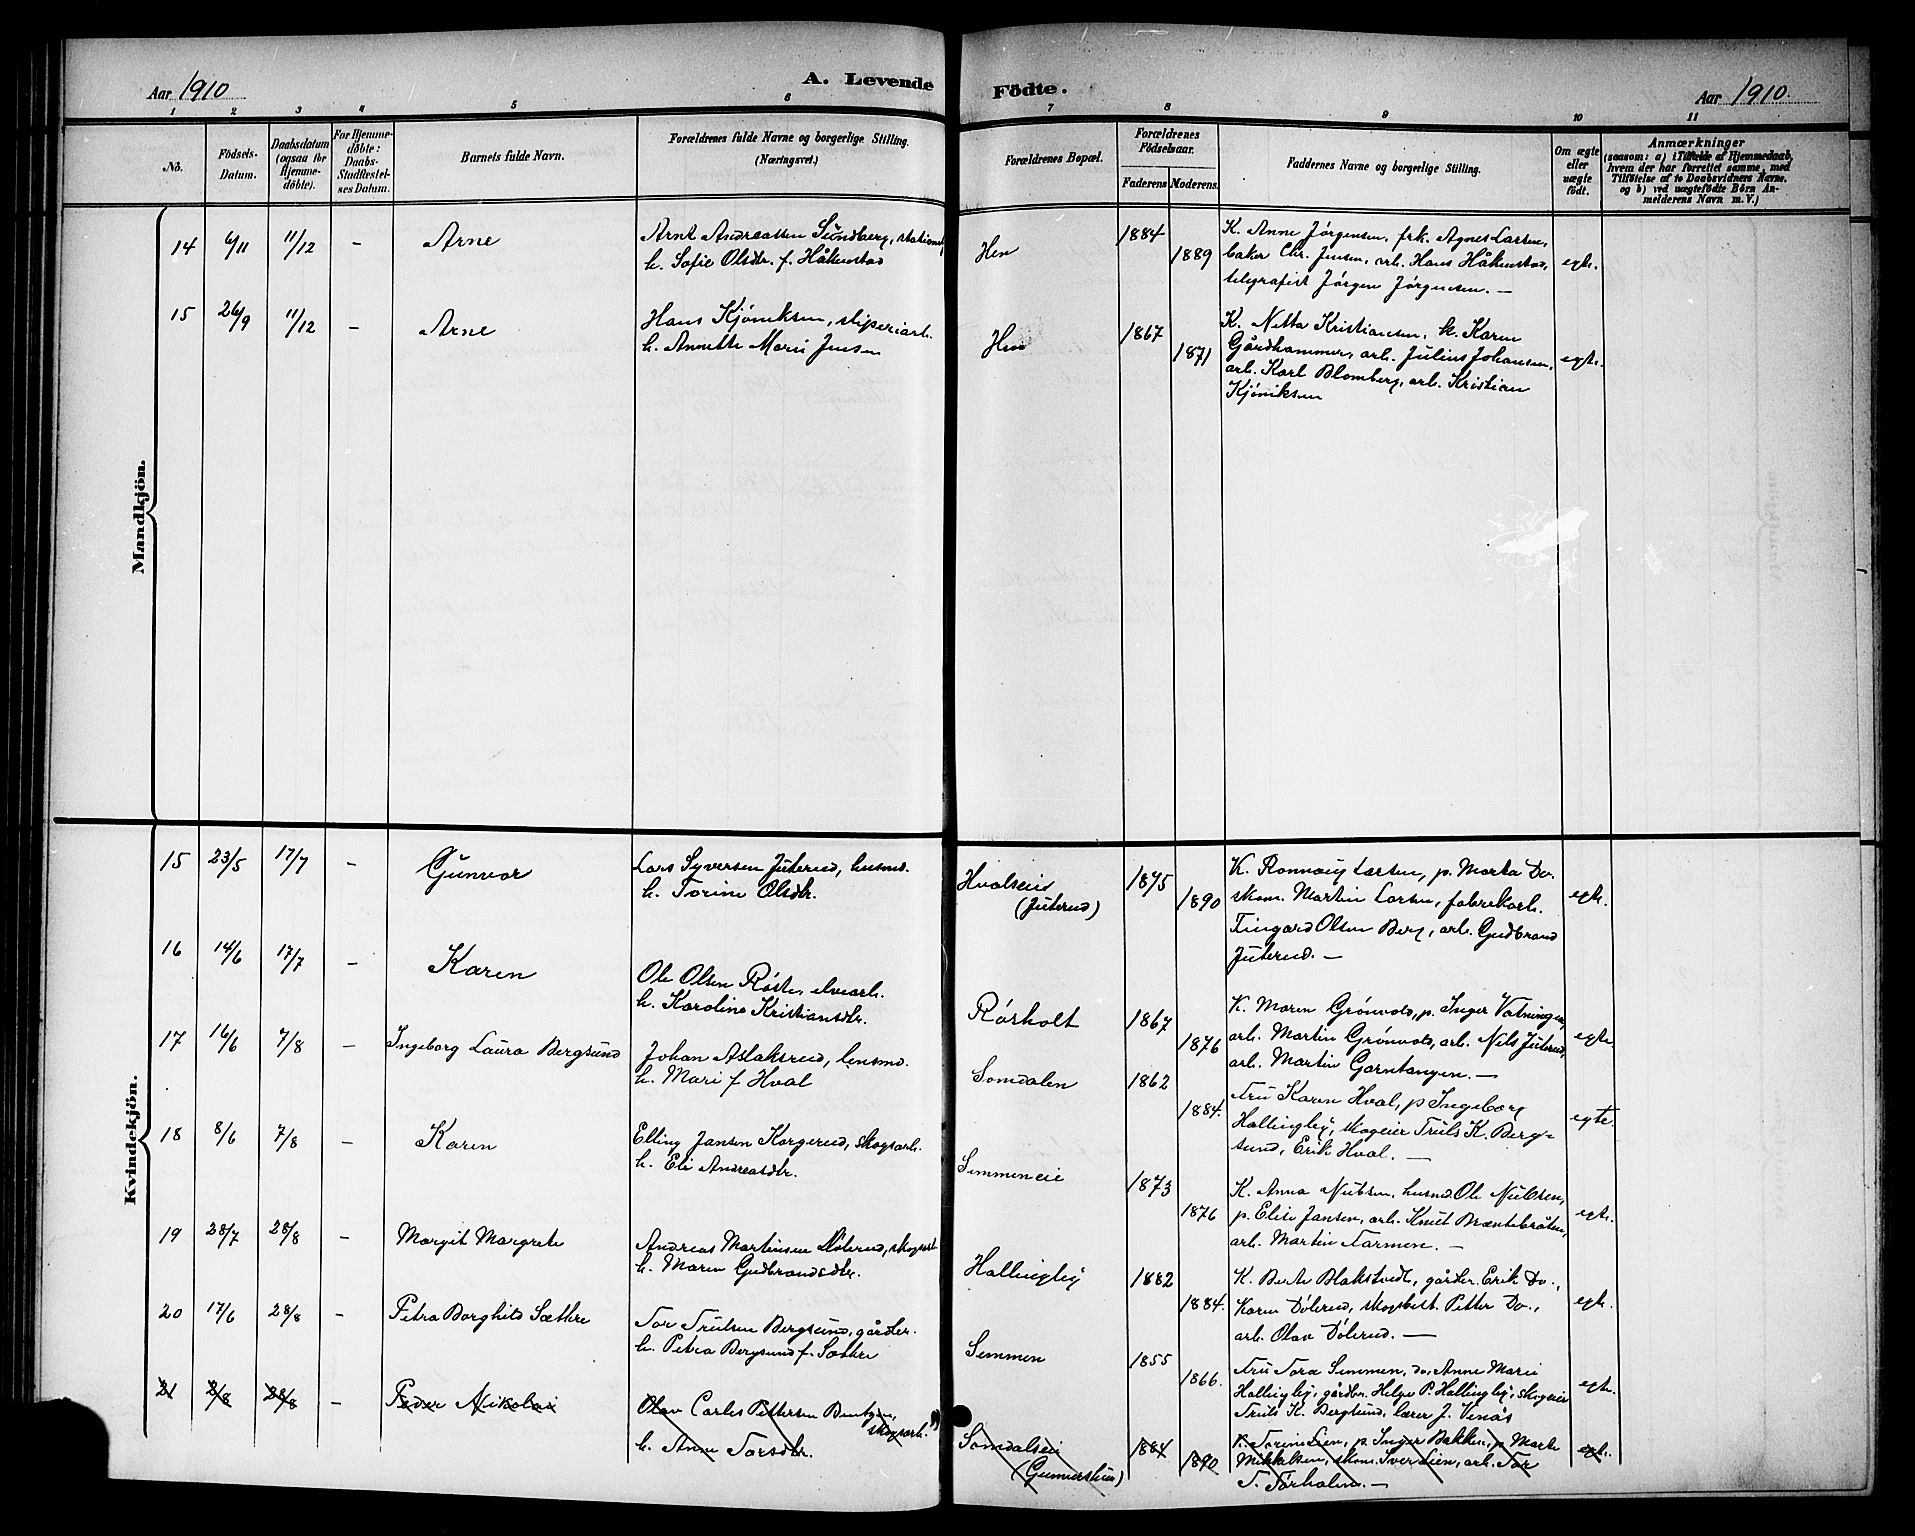 Aar 1910
A. Levende Födte.
Aar 1910.
1 2 3 4 5 6 7 8 9 10 11
No.
Födsels-
Datum.
Daabsdatum
(ogsaa for
Hjemme-
döbte).
For Hjemme-
döbte:
Daabs-
Stadfestel-
ses Datum.
Barnets fulde Navn.
Forældrenes fulde Navne og borgerlige Stilling.
(Næringsvei.)
Forældrenes Bopæl.
Forældrenes
Födselsaar.
Faderens. Moderens.
Faddernes Navne og borgerlige Stilling.
Om ægte
eller
uægte
födt.
Anmærkninger
(saasom: a) i Tilfælde af Hjemmedaab,
hvem der har forrettet samme, med
Tilföielse af to Daabsvidners Navne,
og b) ved uægtefödte Börn An-
melderens Navn m. V.)
Mandkjön.
14 6/11 11/12 - Arne
Arnt Andreassen Sundberg,
h. Sofie Olsdtr. f. Håkenstad
Hen
1884
1889
K. Anne Jørgensen, frk. Agnes Larsen,
baker Chr. Jensen, arb. Hans Håkenstad,
telegrafist Jørgen Jørgensen. —
egte.
15 26/9 11/12 - Arne
Hans Kjøniksen, sliperiarb.
h. Annette Marie Jensen
Hen
1867
1871
K. Netta Kristiansen, k. Karen
Gårdhammer, arb. Julius Johansen,
arb. Karl Blomberg, arb. Kristian
Kjøniksen
egte.
Kvindekjön.
15 23/5 17/7 - Gunvor
Lars Syversen Juterud, husmd.
h. Torine Olsdtr.
Hvalseie
(Juterud)
1875
1890
K. Rønnaug Larsen, p. Marta Do.
skom. Martin Larsen, fabrikarb.
Olsen Berg, arb. Gudbrand
Juterud. —
egte.
16 14/6 17/7 - Karen
Ole Olsen Røste, elvearb.
h. Karoline Kristiansdtr.
Rørholt
1867
1876
K. Maren Grønvold, p. Inger
arb. Martin Grønvold, arb. Nils Juterud,
arb. Martin Garntangen. —
egte.
17 16/6 7/8 - Ingeborg Laura Bergsund
Johan Aslaksrud, lensmd.
h. Mari f. Hval
Somdalen
1862
1884.
Fru Karen Hval, p. Ingeborg
Hallingby, skogeier Truls K. Berg-
sund, Erik Hval. —
egte.
18 8/6 7/8 - Karen
Elling Jansen Korgerud, skogsarb.
h. Eli Andreasdtr.
Semmeneie
1873
1876
K. Anna Nielsen, husmd. Ole Nielsen,
p. Elise Jansen, arb. Knut Bræntebråten,
arb. Martin Tarmen. —
egte.
19 28/7 28/8 - Margit Margrete
Andreas Martinsen Dølerud, skogsarb.
h. Maren Gudbrandsdtr.
Hallingby
1882
1884.
K. Berte Blakstvedt, gårdbr. Erik Do.,
Karen Dølerud, skogbest. Petter Do.,
arb. Olav Dølerud. —
egte.
20 17/6 28/8 - Petra Borghild Sæthre
Tor Trulsen Bergsund, gårdbr.
h. Petra Bergsund f. Sæthre
Semmen
1855
1866.
Fru Tora Semmen, do. Anne Marie
Hallingby, gårdbr. Helge P. Hallingby, skogeier
Truls K. Bergsund, lærer J. Venås
egte.
21 2/8 28/8 - Peder Nikolai
Olav Carles Pettersen Bentzen,
skogsarb.
h. Anne Torsdtr.
Somdalseie
(Gunnershein)
1884
1890
K. Torine Lien, p. Inger Bakken, p. Marte
Mikkelsen, skom. Iver Lien, arb. Tor
T. Torhalen. —
egte.